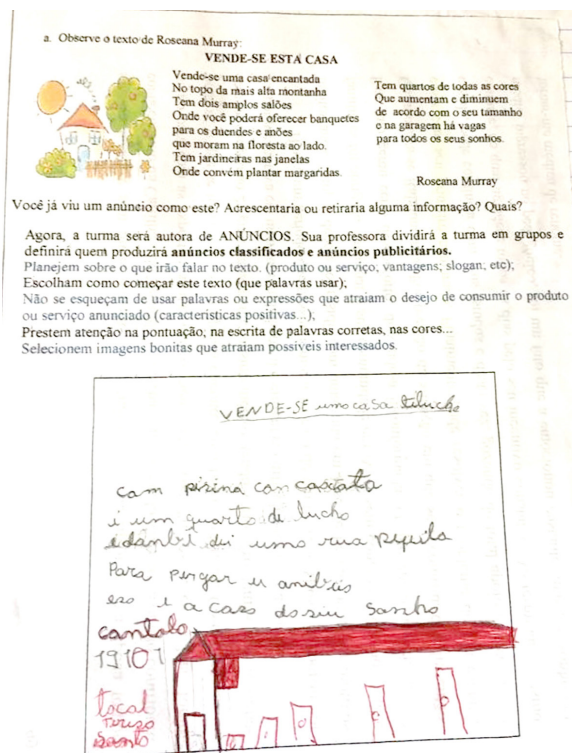 a. Observe o texto de Roseana Murray:
VENDE-SE ESTA CASA
Vende-se uma casa encantada
No topo da mais alta montanha
Tem dois amplos salões
Onde você poderá oferecer banquetes
para os duendes e anões
que moram na floresta ao lado.
Tem jardineiras nas janelas
Onde convém plantar margaridas.
Tem quartos de todas as cores
Que aumentam e diminuem
de acordo com o seu tamanho
e na garagem há vagas
para todos os seus sonhos.
Roseana Murray
Você já viu um anúncio como este? Acrescentaria ou retiraria alguma informação? Quais?
Agora, a turma será autora de ANÚNCIOS. Sua professora dividirá a turma em grupos e
definirá quem produzirá anúncios classificados e anúncios publicitários.
Planejem sobre o que irão falar no texto. (produto ou serviço, vantagens; slogan; etc);
Escolham como começar este texto (que palavras usar);
Não se esqueçam de usar palavras ou expressões que atraiam o desejo de consumir o produto
ou serviço anunciado (características positivas...);
Prestem atenção na pontuação, na escrita de palavras corretas, nas cores...
Selecionem imagens bonitas que atraiam possíveis interessados.
VENDE-SE uma casa diluche
com pisina con cascata
i um quarto di lucho
idanbi di uma rua
Para pergar u
eso i a casa do siu sonho
cantato
19101
local